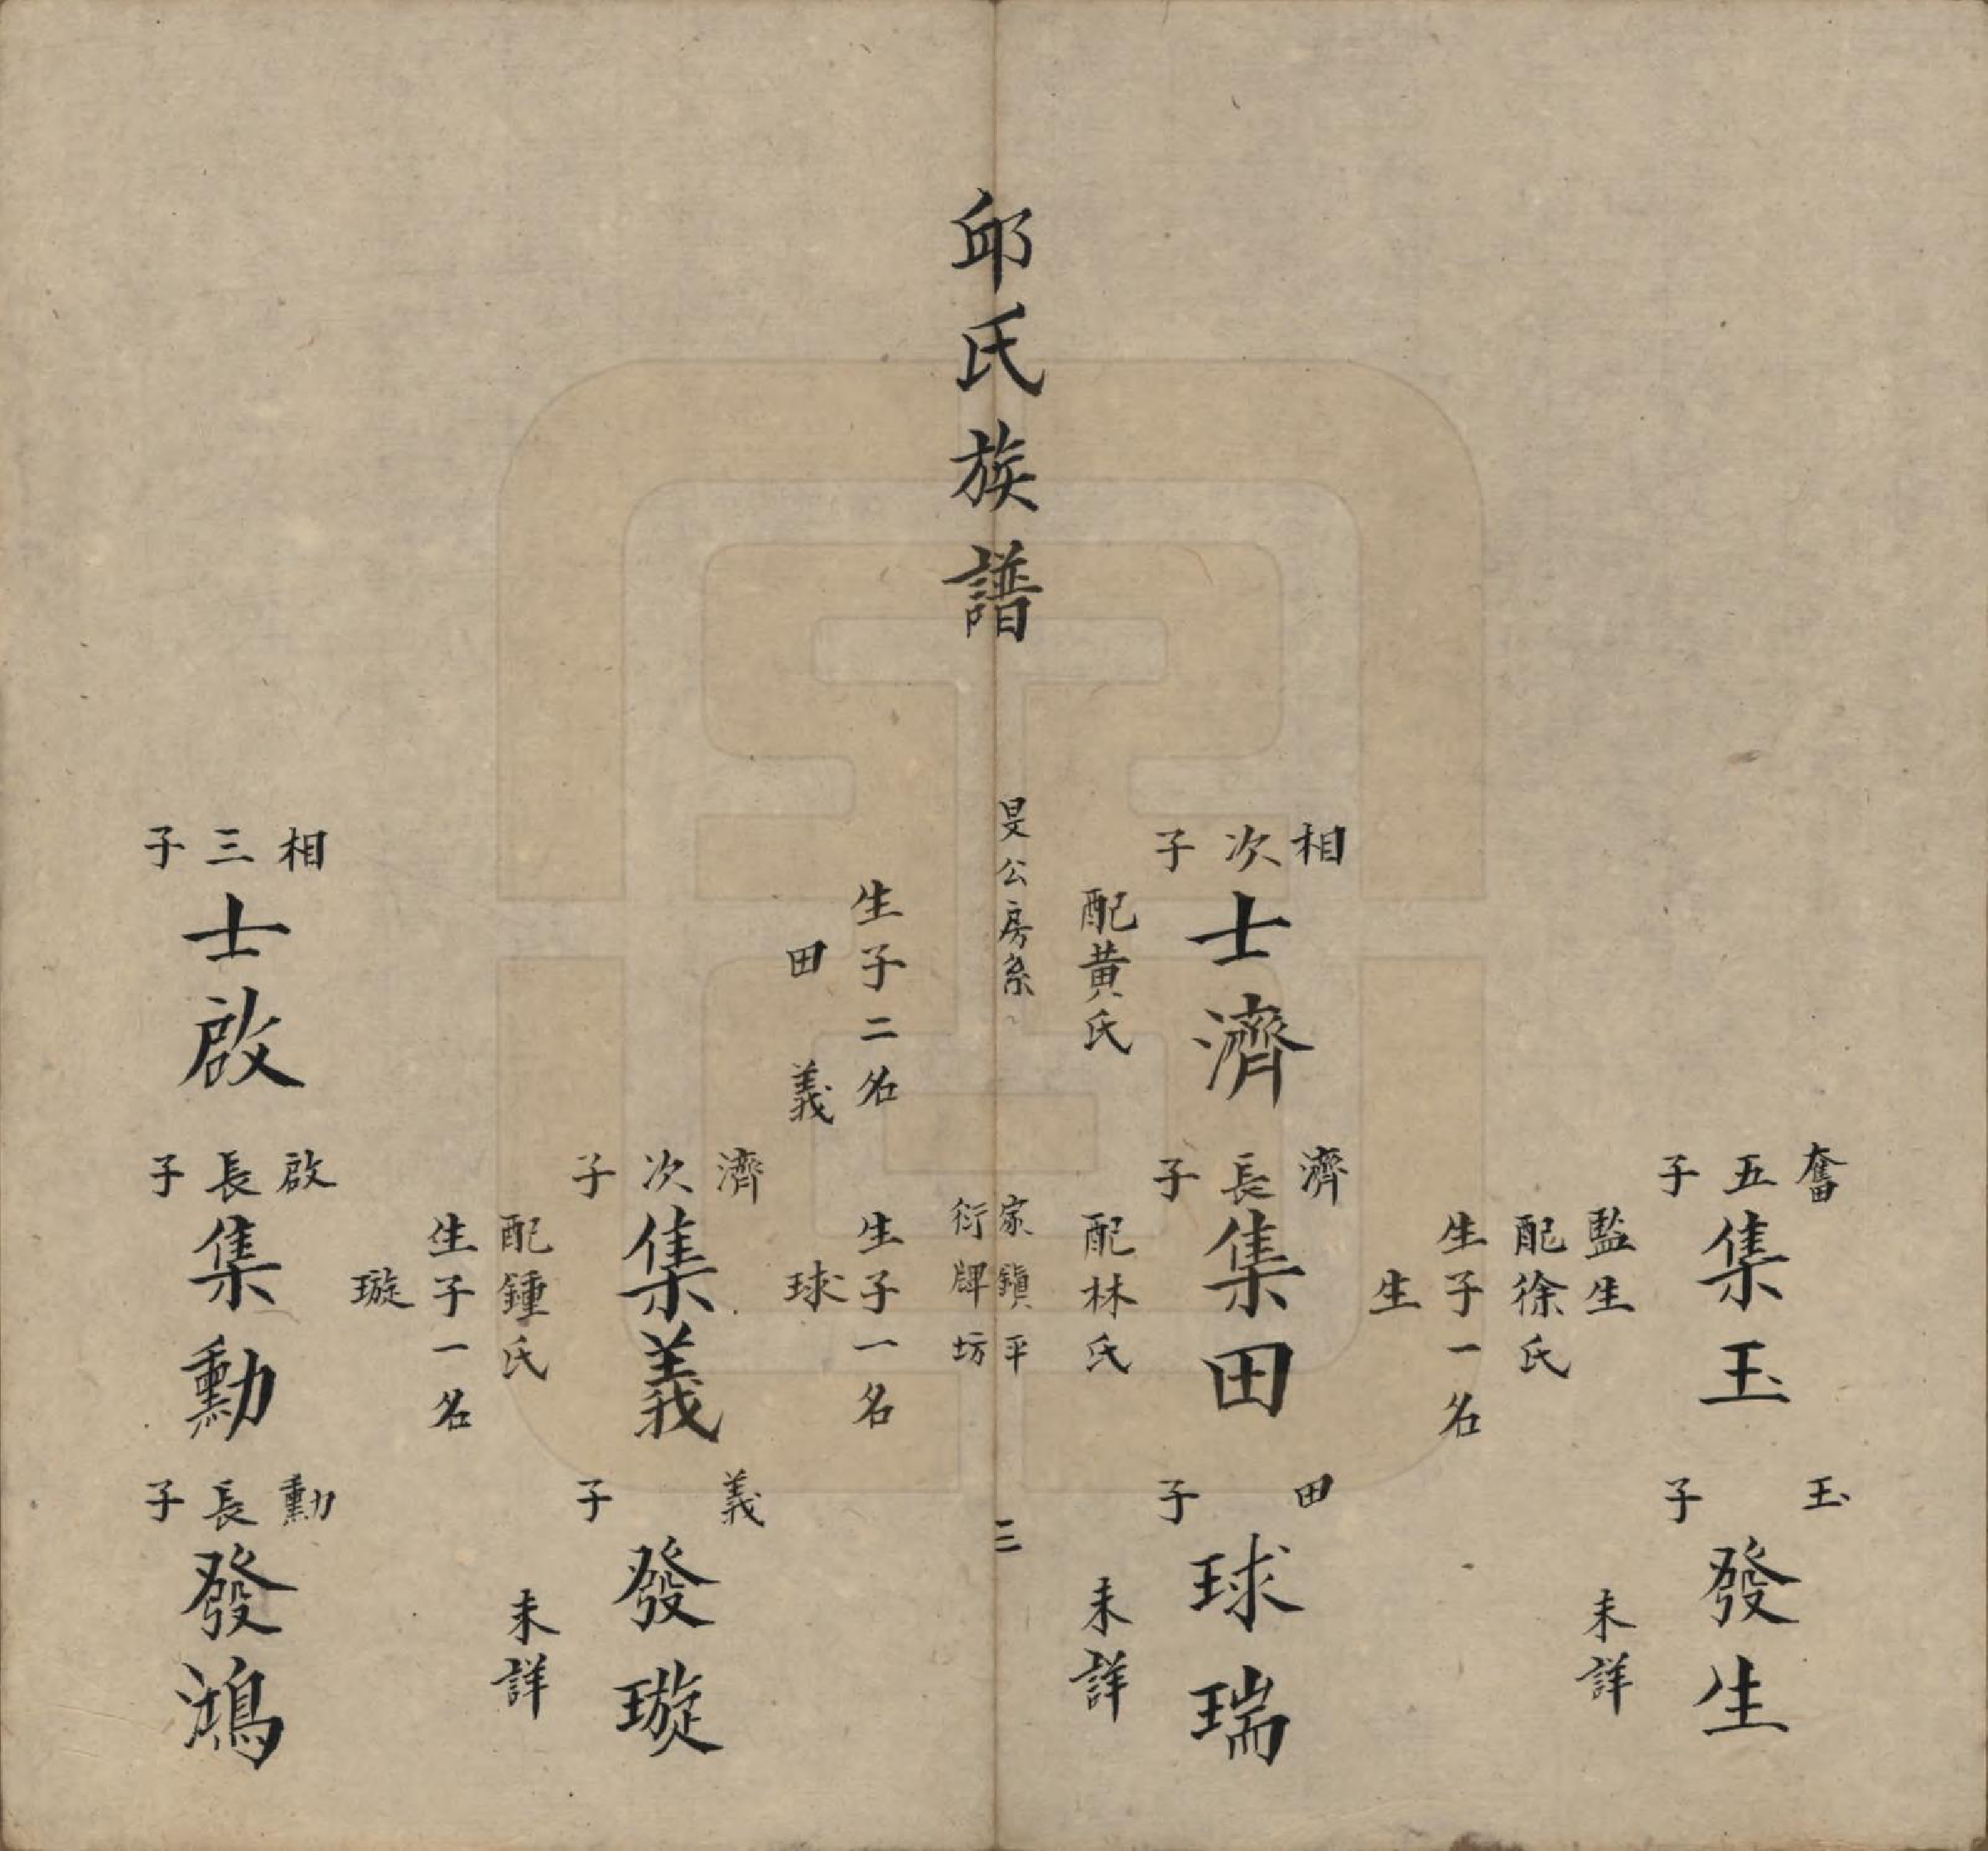 奮五子
集玉
監生
配徐氏
生子一名
生
玉子
發生
未詳
相次子
士濟
配黃氏
生子二名
田 義
濟長子
集田
配林氏
生子一名
球
田子
球瑞
未詳
邱氏族譜
旻公房系
家鎮平
衍牌坊
三
濟次子
集義
配鍾氏
生子一名
璇
義子
發璇
未詳
相三子
士啟
啟長子
集勳
勳長子
發鴻